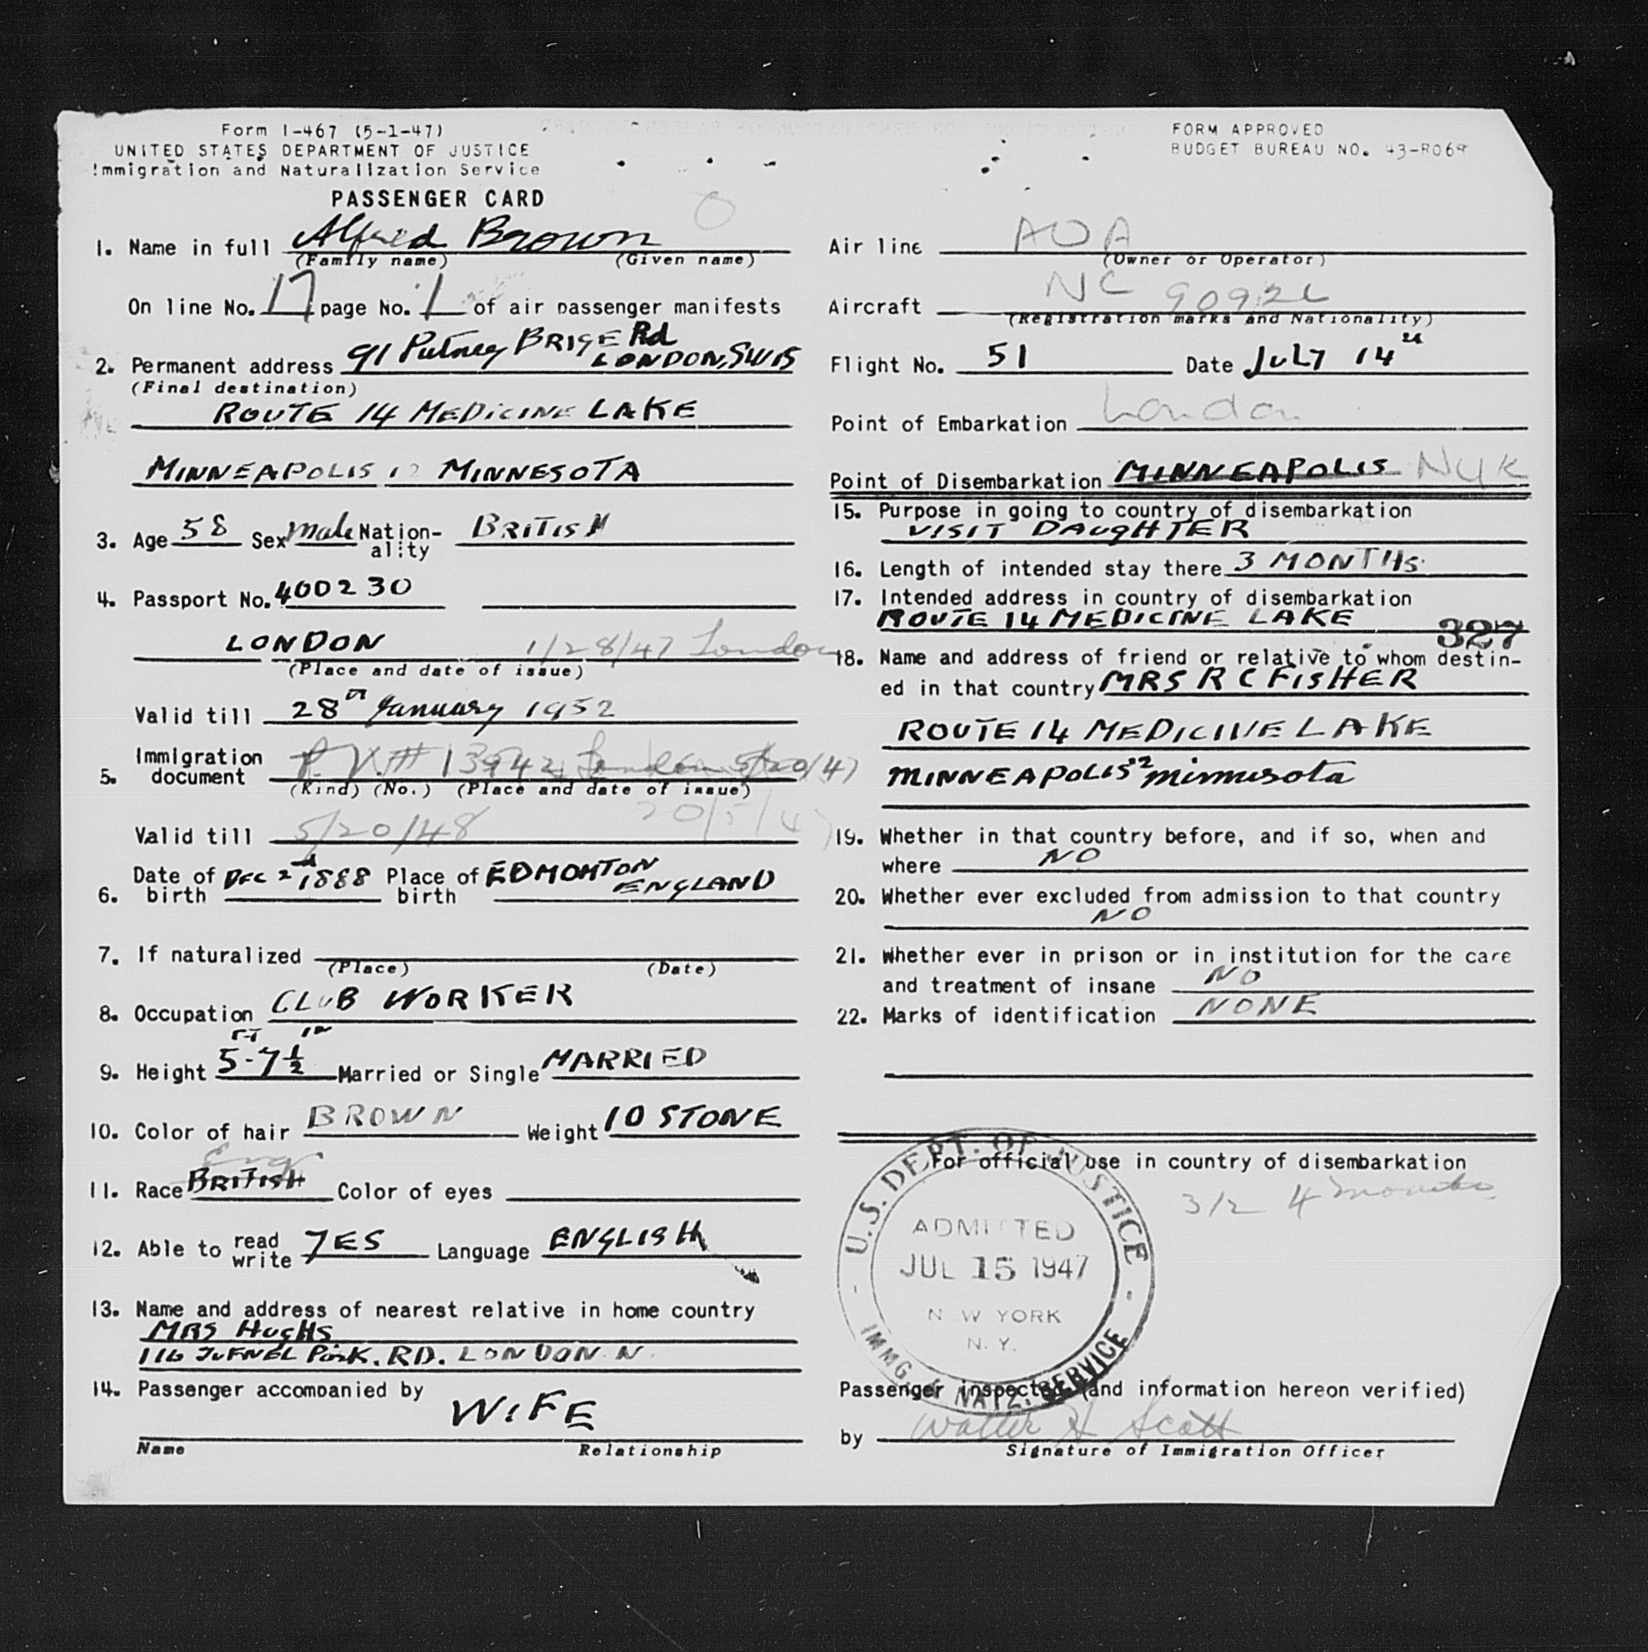 Form I-467 (5-1-47)
UNITED STATES DEPARTMENT OF JUSTICE
Immigration and Naturalization Service
PASSENGER CARD
1. Name in full Alfred Brown
(Family name) (Given name)
On line No. 17 page No. 1 of air passenger manifests
2. Permanent address 91 Putney BRIGE Rd
LONDON, SW15
(Final destination)
ROUTE 14 MEDICINE LAKE
MINNEAPOLIS MINNESOTA
3. Age 58 Sex male Nation-ality BRITISH
4. Passport No. 400230
LONDON 1/28/47 London
(Place and date of issue)
Valid till 28th January 1952
5. Immigration document P.V.# 13942 London 5/20/47
(Kind) (No.) (Place and date of issue)
20/5/47
Valid till 5/20/48
6. Date of birth DEC 2nd 1888 Place of birth EDMONTON
ENGLAND
7. If naturalized
(Place) (Date)
8. Occupation CLUB WORKER
FT IN
9. Height 5-7½ Married or Single MARRIED
10. Color of hair BROWN Weight 10 STONE
Eng
11. Race BRITISH Color of eyes
12. Able to read write YES Language ENGLISH
13. Name and address of nearest relative in home country
MRS HUGHS
116 TUFNEL Park. RD. LONDON. N.
14. Passenger accompanied by
WIFE
Name Relationship
FORM APPROVED
BUDGET BUREAU NO. 43-R069
Air line AOA
(Owner or Operator)
Aircraft NC 90922
(Registration marks and Nationality)
Flight No. 51 Date JULY 14
Point of Embarkation London
Point of Disembarkation MINNEAPOLIS NYK
15. Purpose in going to country of disembarkation
VISIT DAUGHTER
16. Length of intended stay there 3 MONTHS.
17. Intended address in country of disembarkation
ROUTE 14 MEDICINE LAKE
327
18. Name and address of friend or relative to whom destin-
ed in that country MRS R C FISHER
ROUTE 14 MEDICINE LAKE
MINNEAPOLIS 12 minnesota
19. Whether in that country before, and if so, when and
where NO
20. Whether ever excluded from admission to that country
NO
21. Whether ever in prison or in institution for the care
and treatment of insane NO
22. Marks of identification NONE
For official use in country of disembarkation
3/2 4 months
U.S. DEPT. OF JUSTICE
ADMITTED
JUL 15 1947
NEW YORK
N. Y.
IMMG. & NATZ. SERVICE
Passenger inspected (and information hereon verified)
by Walter H Scott
Signature of Immigration Officer